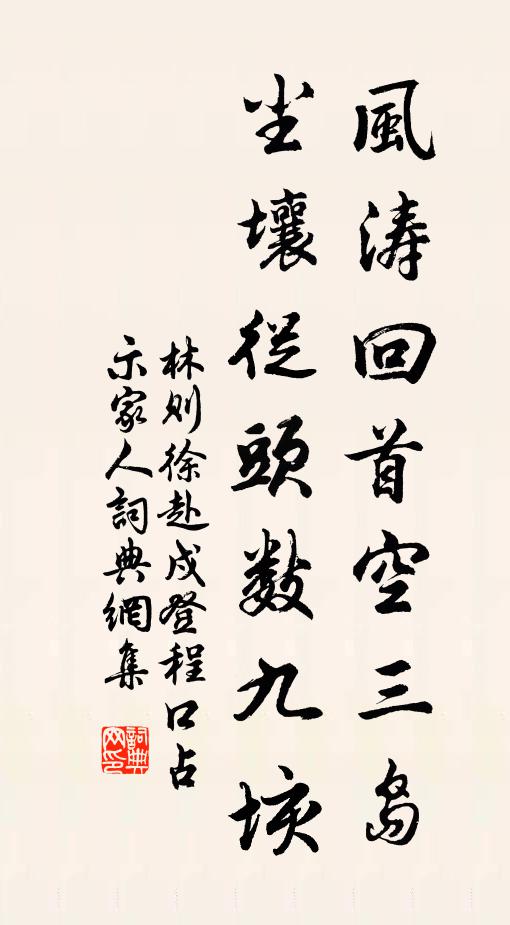 風涛回首空三岛
尘壤從頭數九垓
林则徐赴戍登程口占
示家人詞典網集
詞典
网印